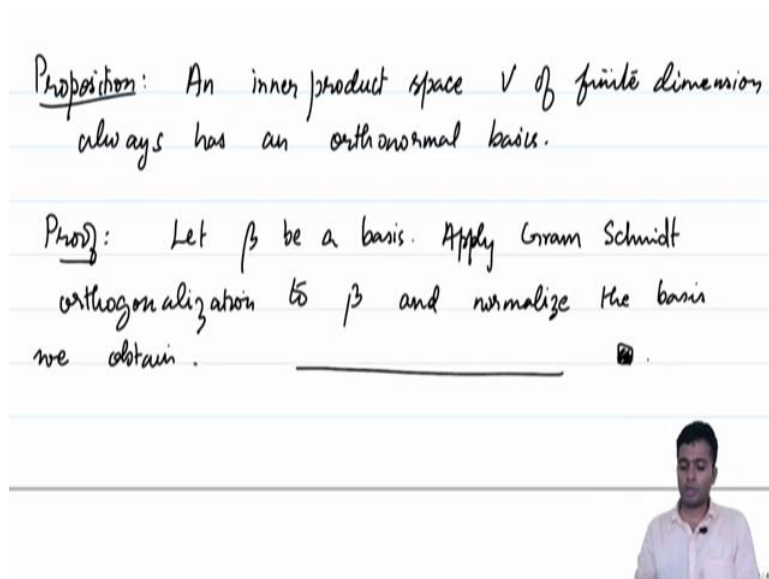 Proposition: An inner product space V of finite dimension
always has an orthonormal basis.
Proof: Let β be a basis. Apply Gram Schmidt
orthogonalization to β and normalize the basis
we obtain.